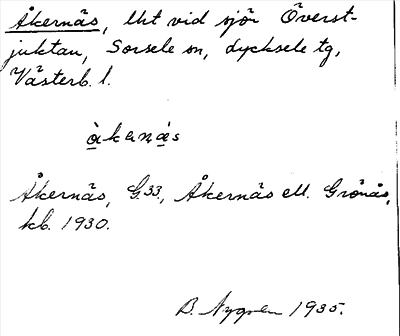 Åkernäs, lht vid sjön Överst-
juktan, Sorsele sn, Lycksele tg,
Västerb. l.
àkenä̀s
Åkernäs, G.33., Åkernäs ell. Grönås,
kb. 1930.
B. Nygren 1935.